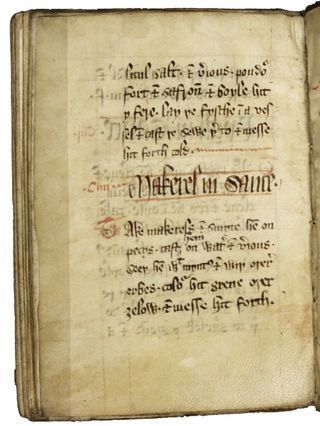 litul salt. & v̾ious. poudo᷑
fort & safron̄ & boyle hit
y fere. lay þe fysche ī a ves
sel & cast þe sewe þ̾to & messe
hit forth cold.
Makerels in sause.
Take makerels & smyte hē on
pecys. cast hem on wat̾ & v̾ious.
seeþ hē wᵗ mynt̾ & wiþ oþer̾
erbes. colo᷑ hit grene oþer
ȝelow. & messe hit forth.